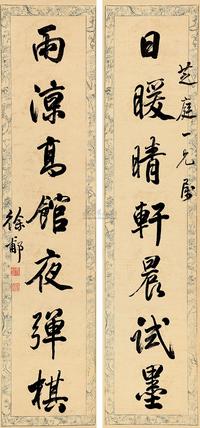 芝庭一兄属
日暖晴軒晨試墨
雨涼高館夜彈棋
徐郙